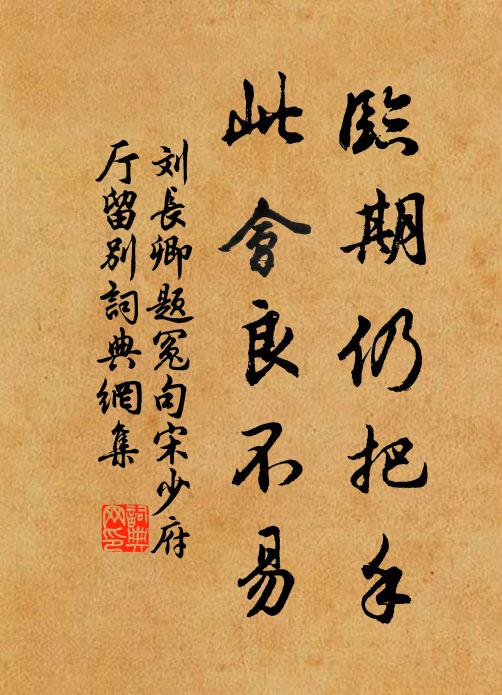 臨期仍把手
此會良不易
刘長卿题冤句宋少府
厅留别詞典網集
詞典网印